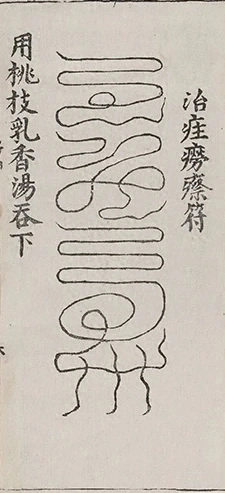 治疰癆瘵符
用桃枝乳香湯吞下